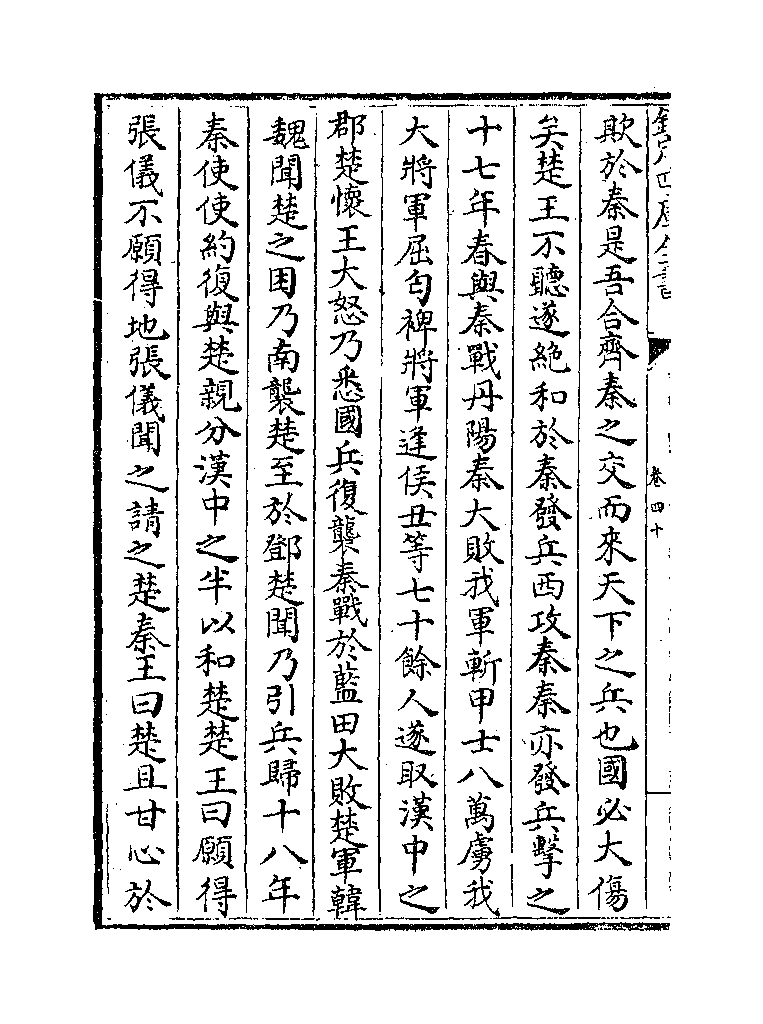 欺於秦是吾合齊秦之交而來天下之兵也國必大傷
矣楚王不聽遂絶和於秦發兵西攻秦秦亦發兵擊之
十七年春與秦戰丹陽秦大敗我軍斬甲士八萬虜我
大將軍屈匄裨將軍逢侯丑等七十餘人遂取漢中之
郡楚懷王大怒乃悉國兵復襲秦戰於藍田大敗楚軍韓
魏聞楚之困乃南襲楚至於鄧楚聞乃引兵歸十八年
秦使使約復與楚親分漢中之半以和楚楚王曰願得
張儀不願得地張儀聞之請之楚秦王曰楚且甘心於
卷四十